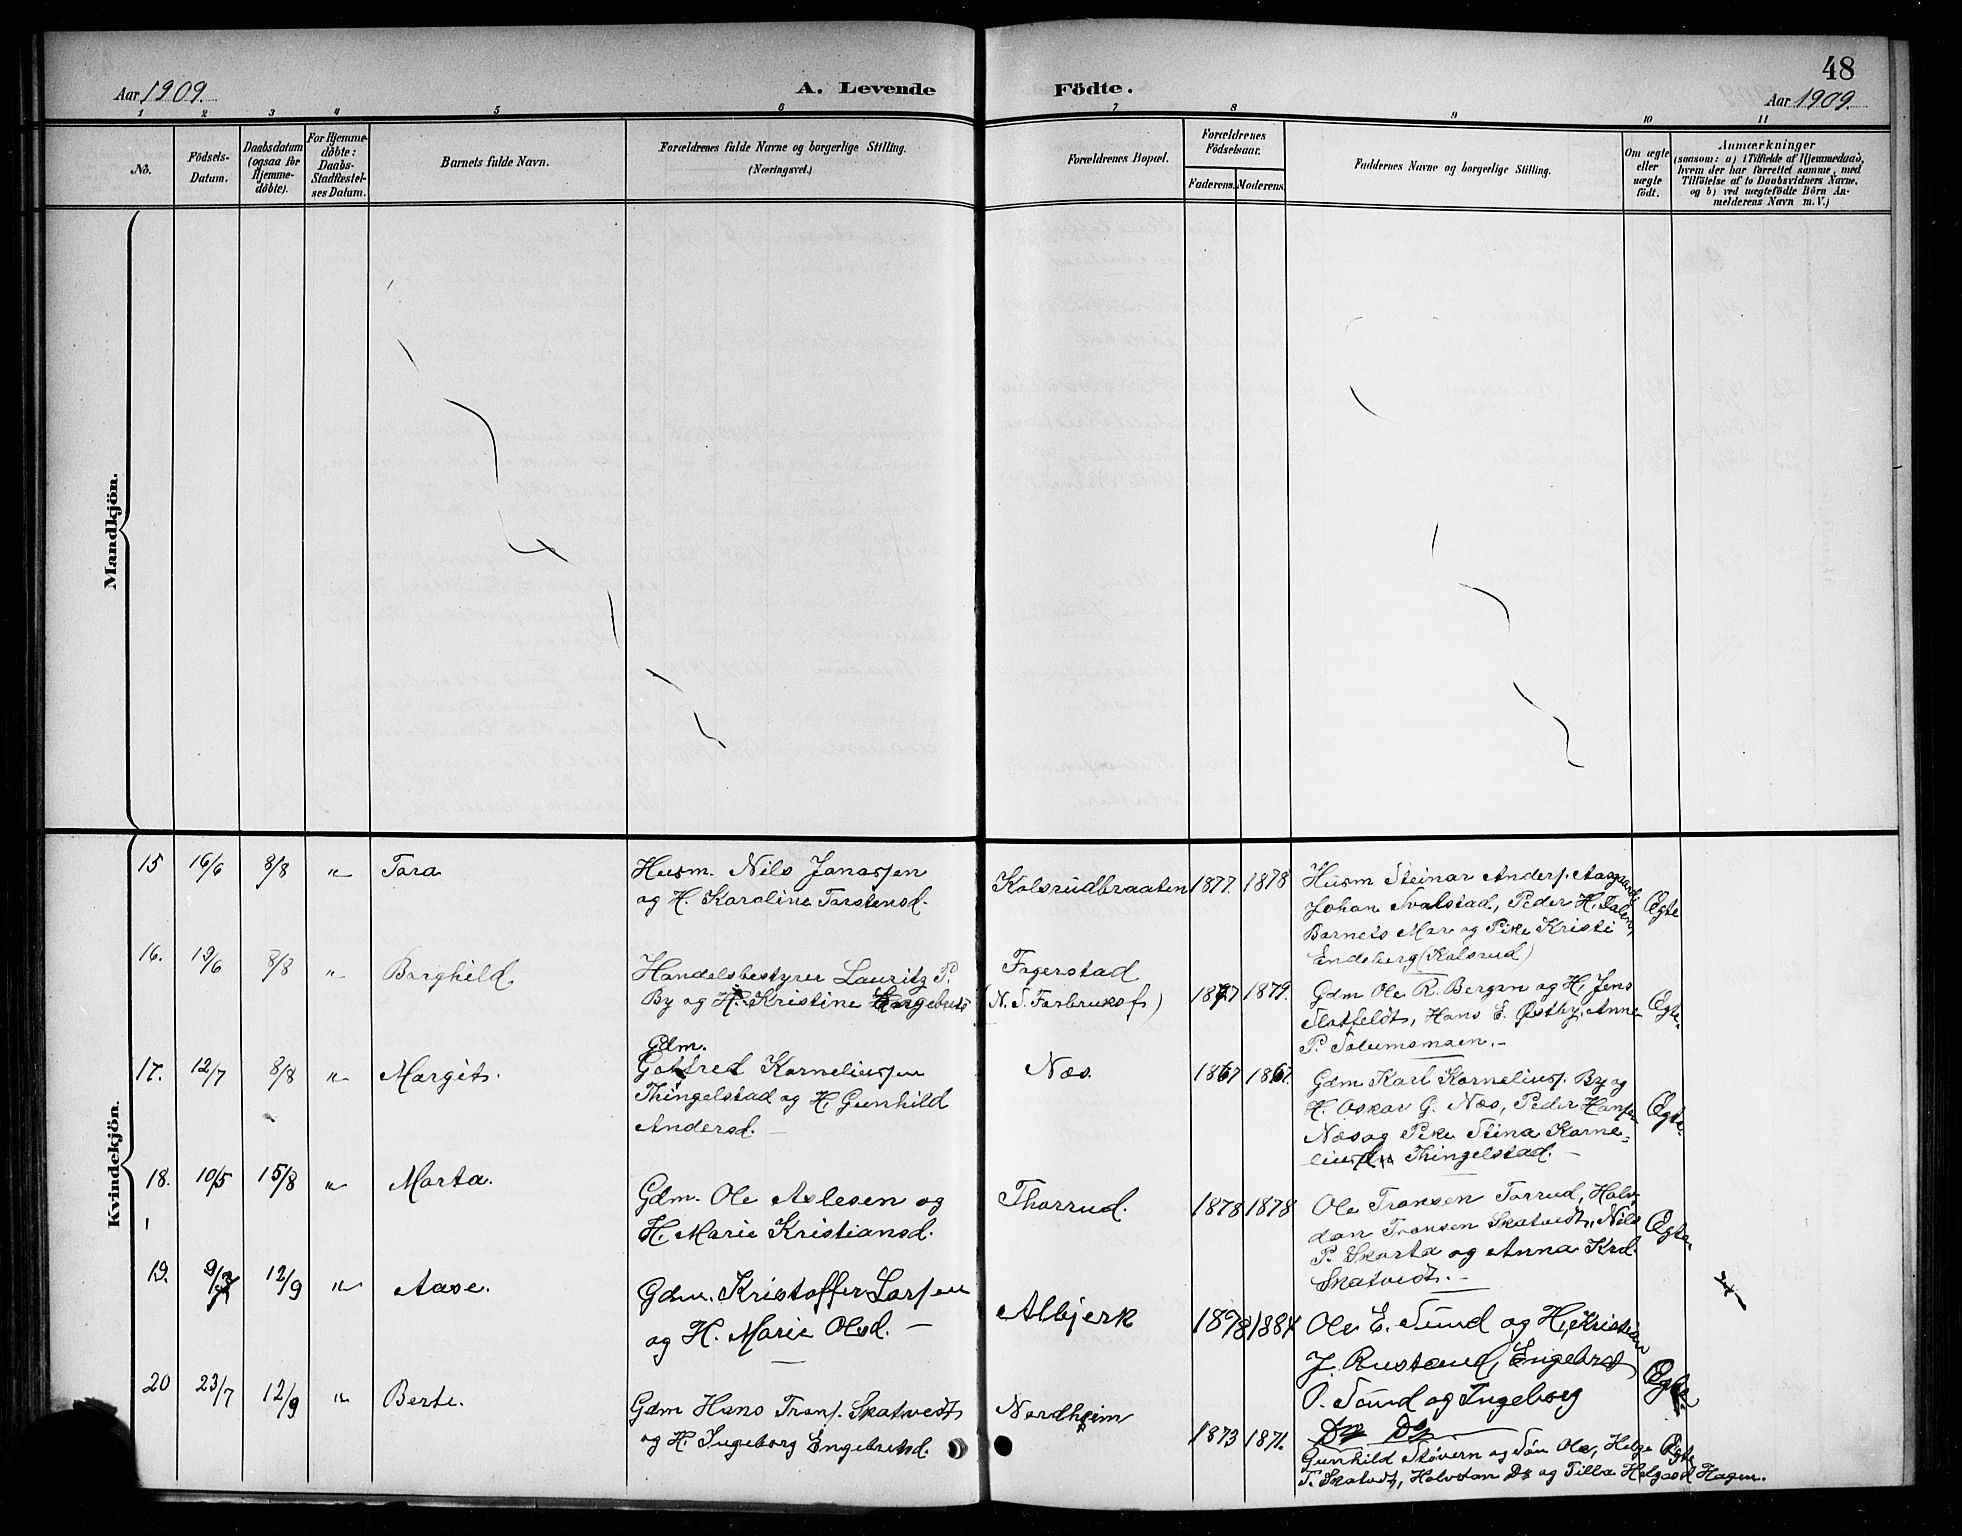 48
Aar 1909.
A. Levende
Födte.
Aar 1909.
1 2 3 4 5 6 7 8 9 10 11
No.
Födsels-
Datum.
Daabsdatum
(ogsaa for
Hjemme-
döbte).
For Hjemme-
døbte:
Daabs-
Stadfæstel-
ses Datum.
Barnets fulde Navn.
Forældrenes fulde Navne og borgerlige Stilling.
(Næringsvei.)
Forældrenes Bopæl.
Forældrenes
Födselsaar.
Faderens. Moderens.
Faddernes Navne og borgerlige Stilling.
Om ægte
eller
uægte
födt.
Anmærkninger
(saasom: a) i Tilfælde af Hjemmedaab,
hvem der har forrettet samme, med
Tilföielse af to Daabsvidners Navne,
og b) ved uægtefödte Börn An-
melderens Navn m. V.)
Mandkjön.
Kvindekjön.
15 16/6 8/8 " Tora
Husm. Nils Jonassen
og H. Karoline Torstensd.
Kolsrudbraaten 1877. 1878
Husm Steinar Anders. Aasgaard,
Johan Svalstad, Peder H.
Barnets Mor og Pike Kristi
Endeberg (Kolsrud)
Ægte
16. 13/6 8/8 " Borghild
Handelsbestyrer Lauritz P.
By og H. Kristine
Fagerstad
(N. S. Forbruksf)
1879.
Gdm Ole R. Bergan og H, Jens
Slatfeldt, Hans E. Østby, Anne
P. Solumsmoen.-
Ægte.
17. 12/7 8/8 " Margit.
Gdm.
Gotfred Korneliussen
Thingelstad og H. Gunhild
Andersd.
Næs. 1867 1867.
Gdm Karl Kornelius. By og
H. Oskar G. Næs, Peder Hansen
Næs og Pike Stina Korne-
Thingelstad.
Ægte.
18. 10/5 15/8 " Marta.
Gdm. Ole Aslesen og
H. Marie Kristiansd.
Thorrud. 1878 1878
Ole Tronsen Torrud, Halv-
dan Tronsen Skatvedt, Nils
P. Skarta og Anna Krd.
Skatvedt.-
Ægte.
19. 12/9 " Aase.
Gdm. Kristoffer Larsen
og H. Marie Olsd. -
Albjerk 1884
Ole E. Sund og H, Kristian
J. Rustand, Engebret
O. Sund og Ingeborg
Ds Ds
Ægte.
20 23/7 12/9 " Berte.
Gdm Hans Trons. Skatvedt
og H. Ingeborg Engebretsd.
Nordheim 1873 1871.
Gunhild Støvern og Søn Ole, Helge
T. Skatvedt, Halvdan Ds og Tilla Helgesd Hagen.
Ægte